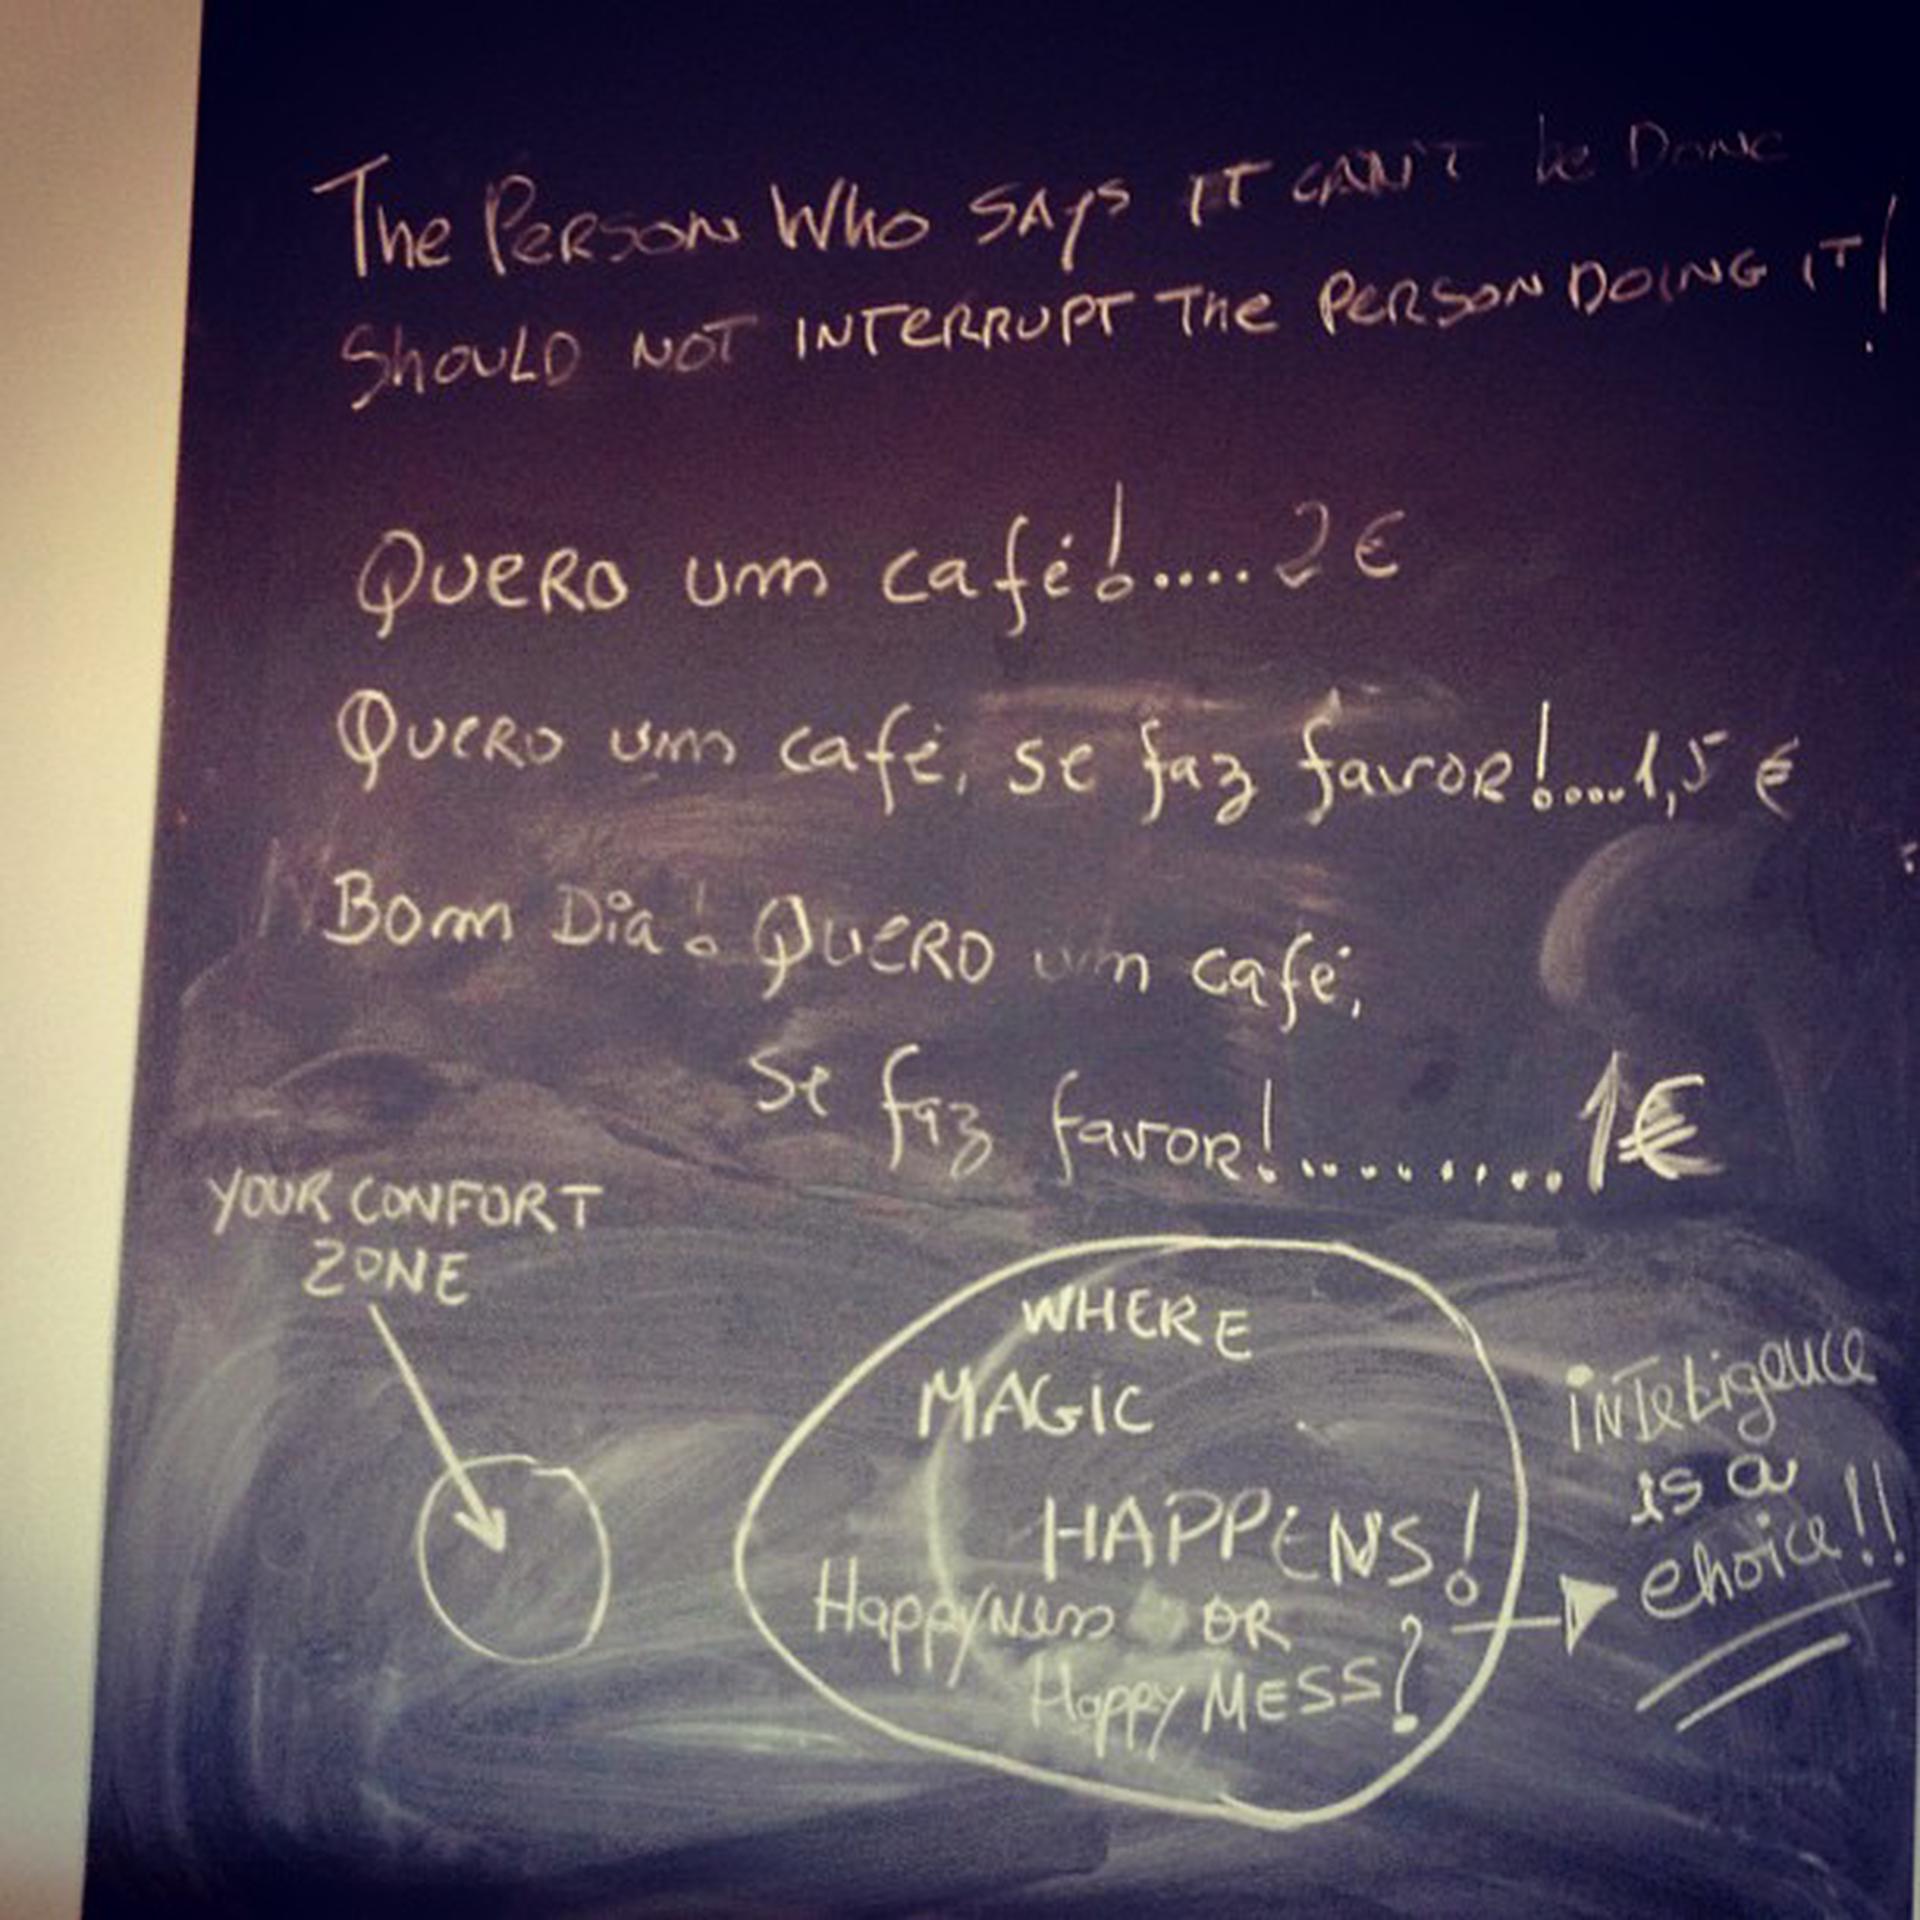 The Person Who says IT CAN'T be Done
Should NOT INTERRUPT The Person DOING IT!
Quero um café!.... 2 €
Quero um café, se faz favor!....1,5 €
Bom Dia! Quero um café,
se faz favor!..........1€
YOUR CONFORT
ZONE
WHERE
MAGIC
HAPPENS!
HappyNess OR
Happy MESS?
iNTeLigence
is a
choice!!